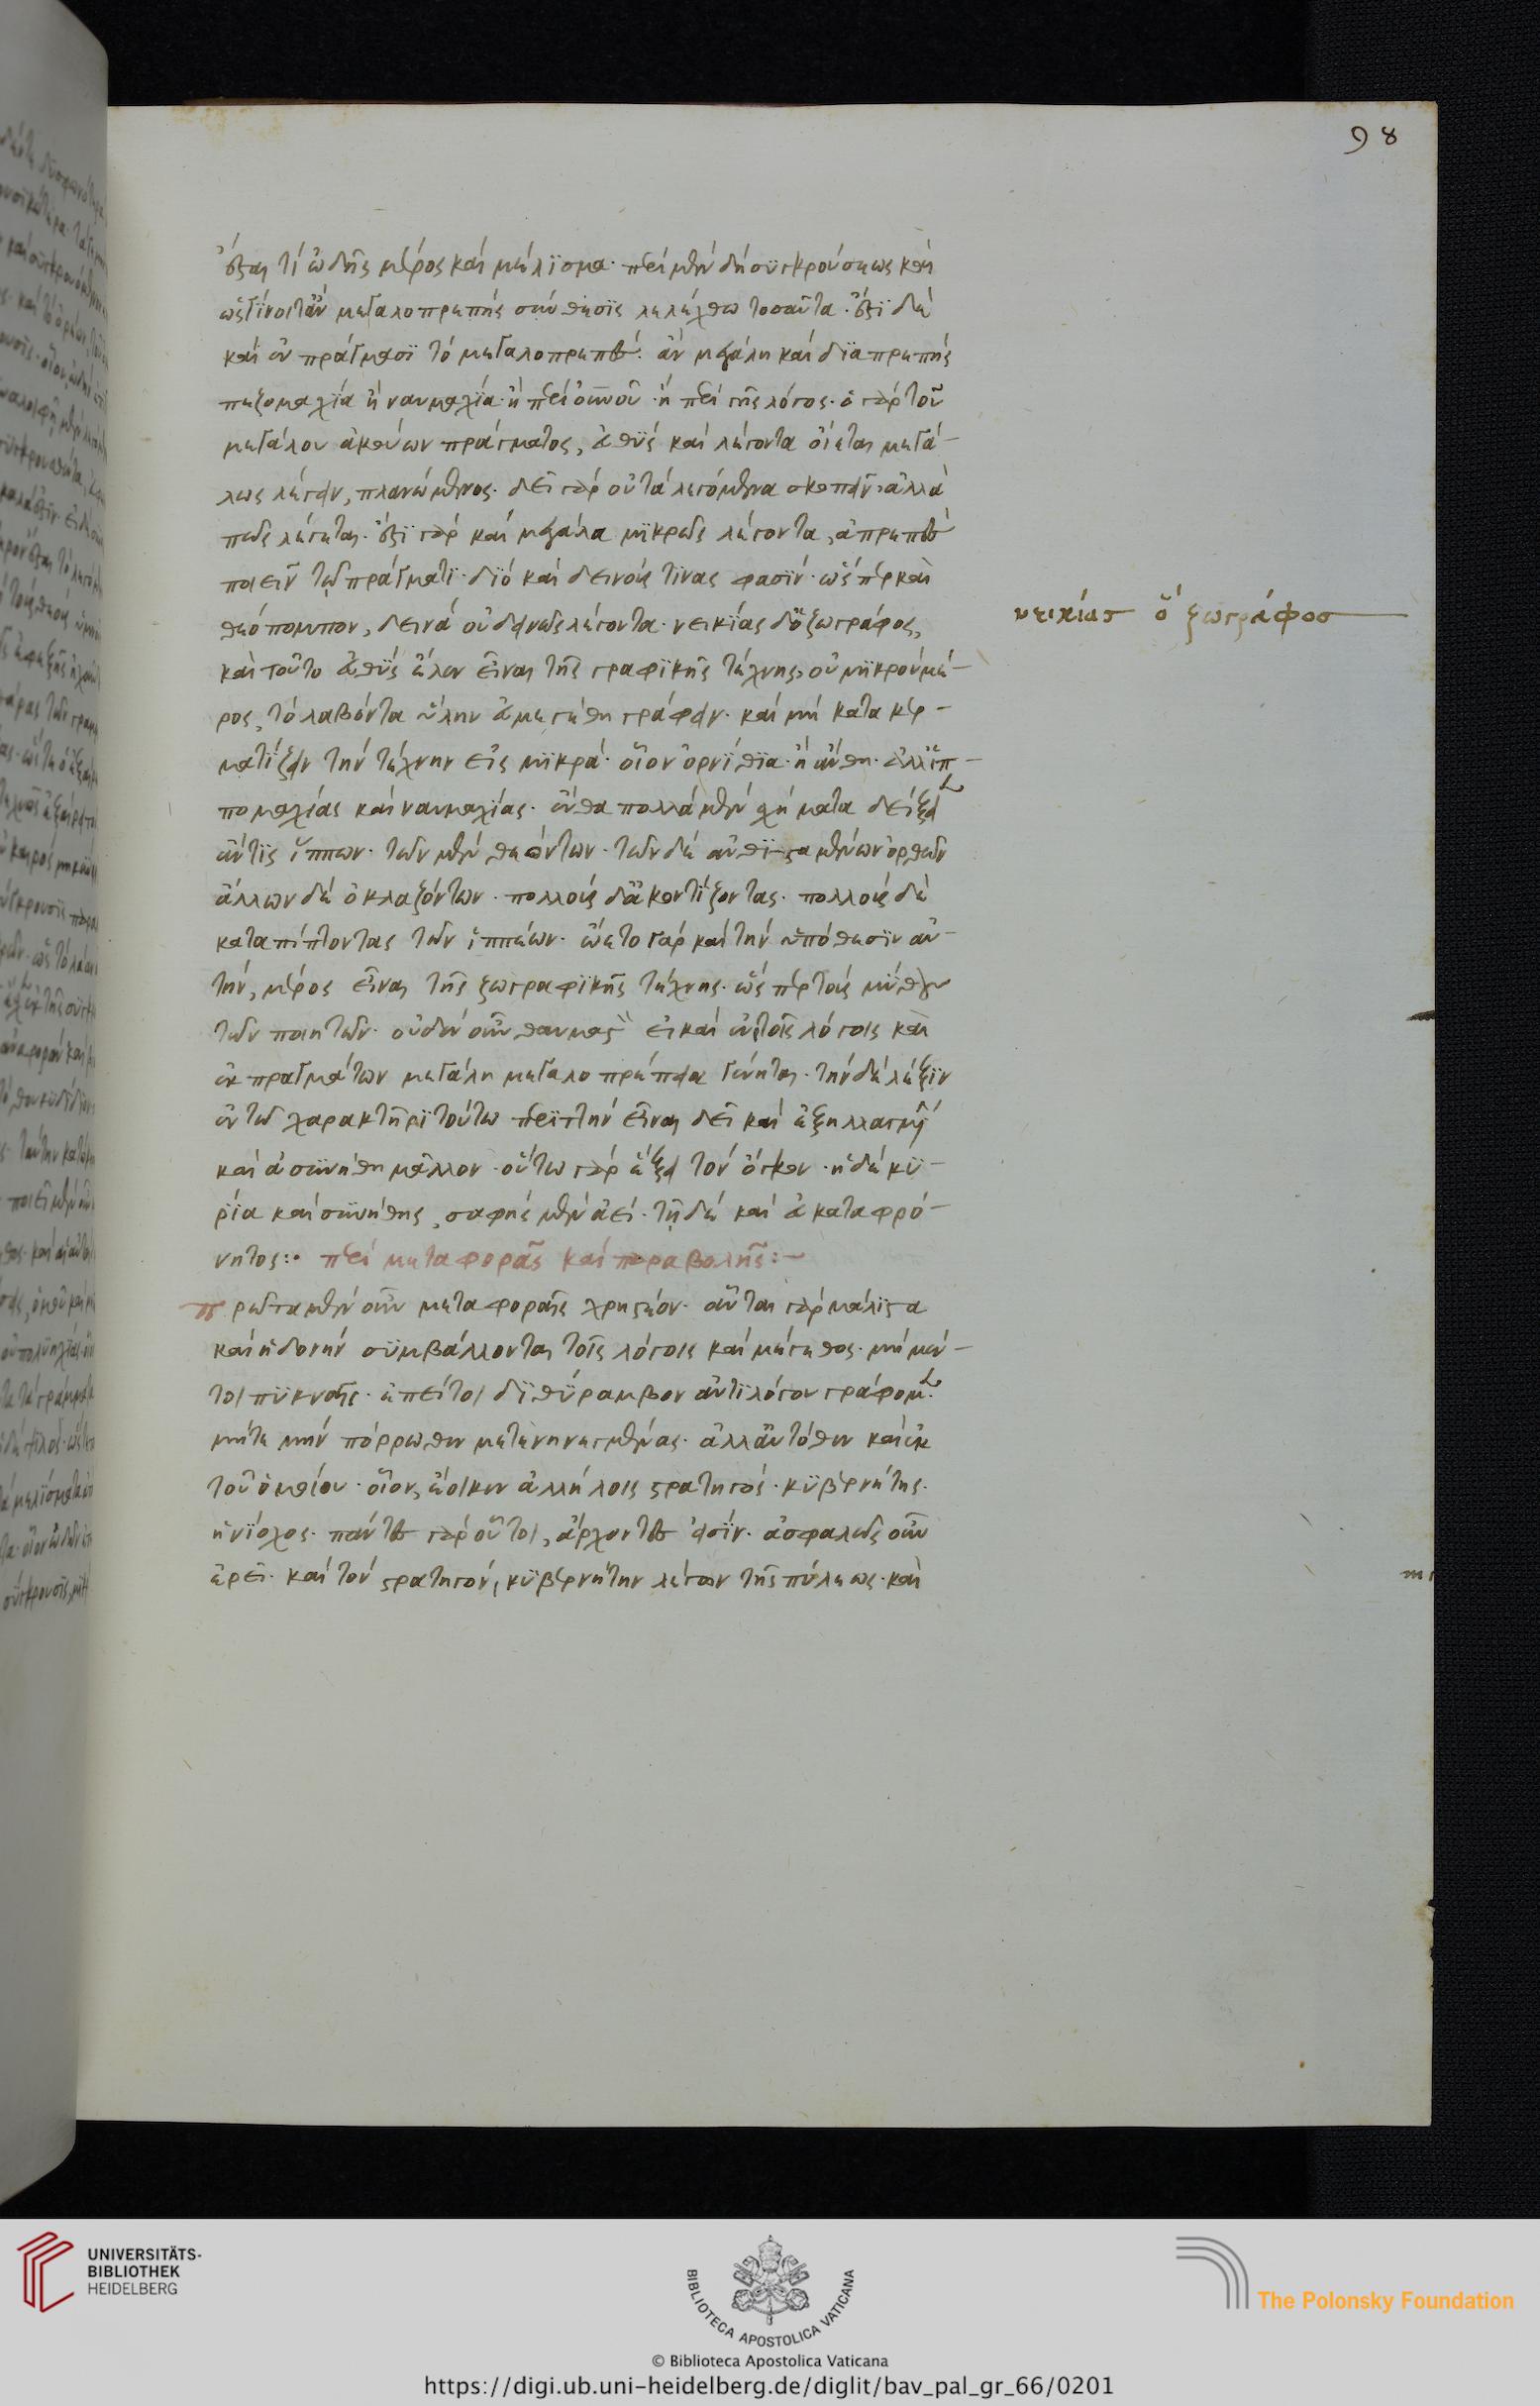 98
ἔσται τί ὠδῆς μέρος καὶ μέλϊσμα· περὶ μὲν δὴ συγκρούσεως καὶ
ὡς γίνοιτ' ἂν μεγαλοπρεπὴς σύνθεσϊς λελέχθω τοσαῦτα· ἔστϊ δὲ
καὶ ἐν πράγμασϊ τὸ μεγαλοπρεπὲς· ἂν μεγάλη καὶ δϊαπρεπὴς
πεζομαχία ἢ ναυμαχία· ἢ περὶ οὐνοῦ· ἢ περὶ γῆς λόγος· ὁ γὰρ τοῦ
μεγάλου ἀκούων πράγματος, εὐθὺς καὶ λέγοντα οἴεται μεγά-
λως λέγειν, πλανώμενος· δεῖ γὰρ οὐ τὰ λεγόμενα σκοπεῖν, ἀλλὰ
πῶς λέγεται· ἔστϊ γὰρ καὶ μεγάλα μϊκρῶς λέγοντα, ἀπρεπὲς
ποιεῖν τῷ πράγματϊ· δϊὸ καὶ δεινούς τϊνας φασϊν· ὥς περ καὶ
θεόπομπον, δεινὰ οὐ δεινῶς λέγοντα· νεικίας δ' ὁ ζωγράφος,
καὶ τοῦτο εὐθὺς ἔλεγεν εἶναι τῆς γραφϊκῆς τέχνης, οὐ μϊκρὸν μέ-
ρος, τὸ λαβόντα ὕλην εὐμεγέθη γράφειν· καὶ μὴ κατακερ-
ματίζειν τὴν τέχνην εἰς μϊκρά· οἷον ὀρνίθϊα· ἢ ἄνθη· ἀλλ' ἱπ-
πομαχίας καὶ ναυμαχίας· ἔνθα πολλὰ μὲν σχήματα δείξειεν
ἄν τϊς ἵππων· τῶν μὲν θεόντων· τῶν δὲ ἀνθϊσταμένων ὀρθῶν
ἄλλων δὲ ὀκλαζόντων· πολλοὺς δ' ἀκοντίζοντας· πολλοὺς δὲ
καταπίπτοντας τῶν ἱππέων· ᾤετο γὰρ καὶ τὴν ὑπόθεσϊν αὐ-
τήν, μέρος εἶναι τῆς ζωγραφϊκῆς τέχνης· ὥς περ τοὺς μύθους
τῶν ποιητῶν· οὐδὲν οὖν θαυμαστὸν εἰ καὶ ἐν τοῖς λόγοις καὶ
ἐκ πραγμάτων μεγάλη μεγαλοπρέπεια γένηται· τὴν δὲ λέξϊν
ἐν τῷ χαρακτῆρϊ τούτω περϊττὴν εἶναι δεῖ καὶ ἐξηλλαγμένην
καὶ ἀσυνήθη μᾶλλον· οὕτω γὰρ ἕξει τὸν ὄγκον· ἡ δὲ κϋ-
ρία καὶ συνήθης, σαφὴς μὲν ἀεί· τῆ δὲ καὶ εὐκαταφρό-
νητος:· περὶ μεταφορᾶς καὶ παραβολῆς:-
πρῶτα μὲν οὖν μεταφοραῖς χρηστέον· αὗται γὰρ μάλϊστα
καὶ ἡδονὴν συμβάλλονται τοῖς λόγοις καὶ μέγεθος· μὴ μέν-
τοι πϋκναῖς· ἐπεί τοι δϊθϋραμβον ἀντὶ λόγου γράφομεν·
μήτε μὴν πόρρωθεν μετενηνεγμέναις· ἀλλ' αὐτόθεν καὶ ἐκ
τοῦ ὁμοίου· οἷον, ἔοικεν ἀλλήλοις στρατηγός· κϋβερνήτης·
ἡνίοχος· πάντες γὰρ οὗτοι, ἄρχοντες εἰσϊν· ἀσφαλῶς οὖν
ἐρεῖ· καὶ τὸν στρατηγόν, κϋβερνήτην λέγων τῆς πόλεως· καὶ
νεικίασ ὁ ζωγράφοσ
UNIVERSITÄTS-
BIBLIOTHEK
HEIDELBERG
BIBLIOTECA APOSTOLICA VATICANA
The Polonsky Foundation
© Biblioteca Apostolica Vaticana
https://digi.ub.uni-heidelberg.de/diglit/bav_pal_gr_66/0201